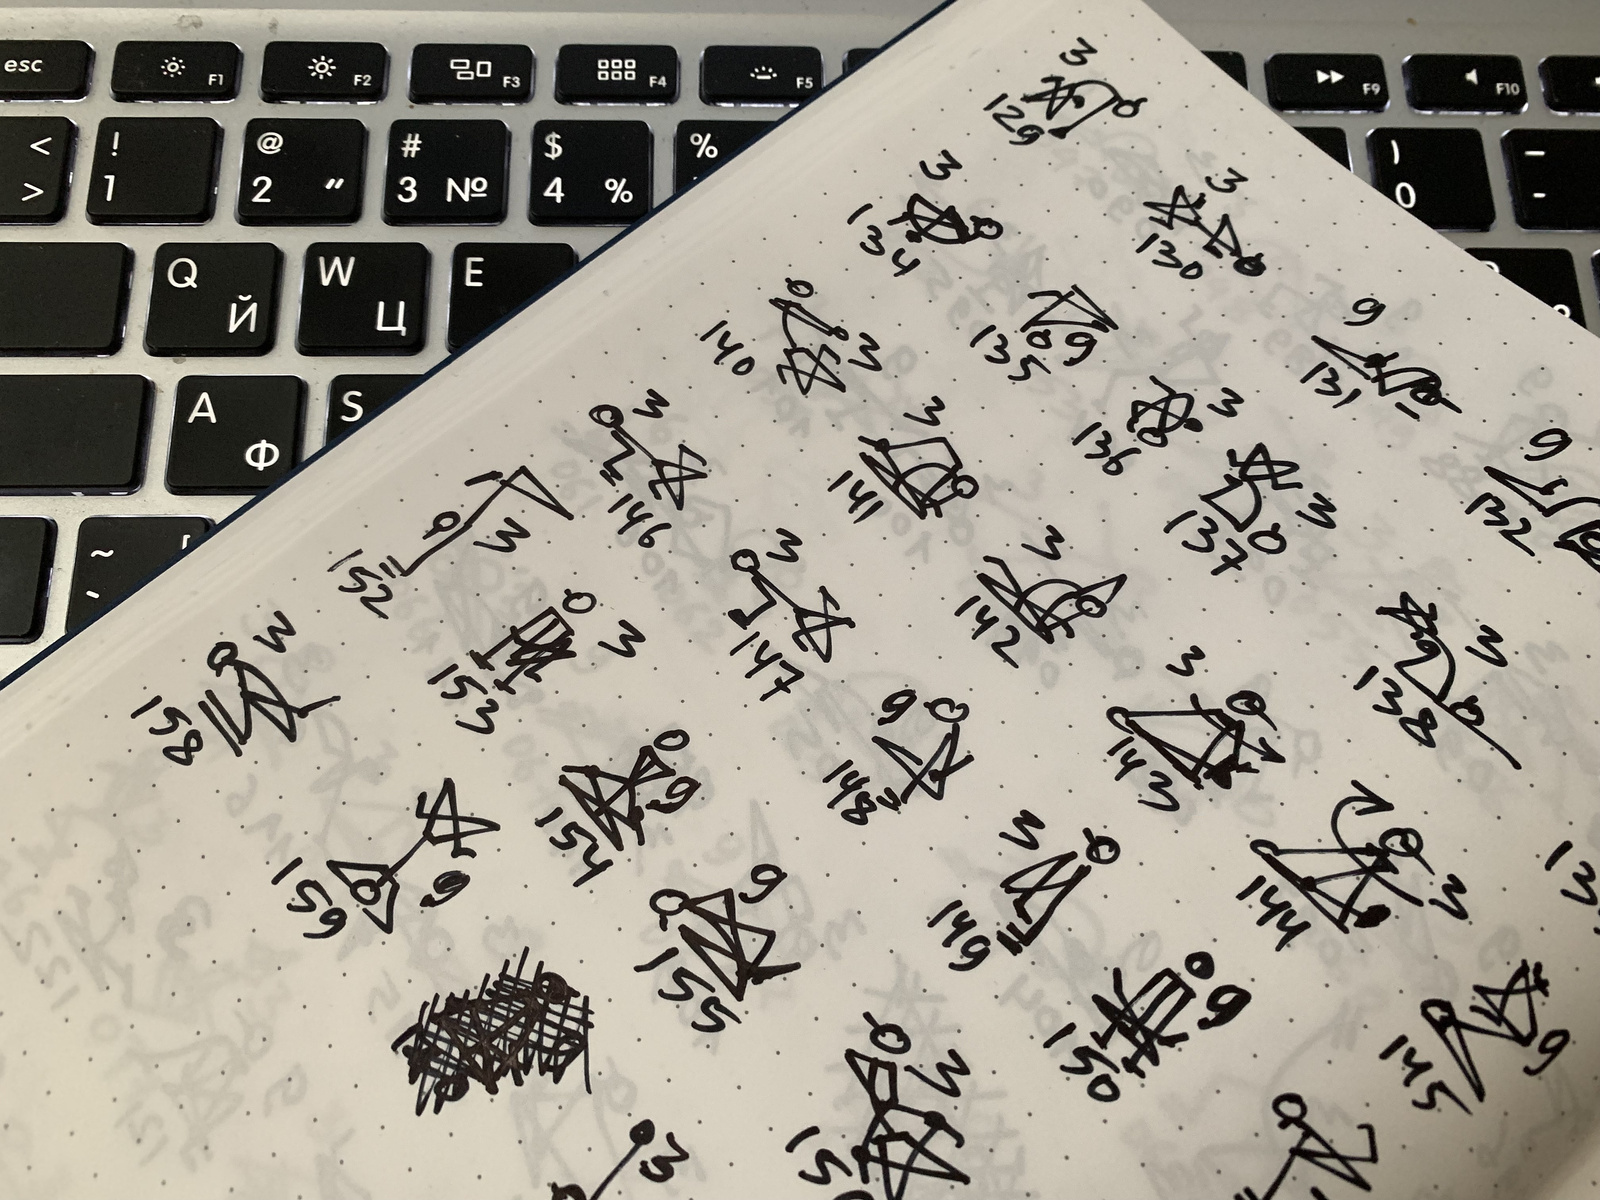 esc F1 F2 F3 F4 F5 F9 F10
< ! @ # $ % )
> 1 2 " 3 № 4 % 0
Q Й W Ц E
A Ф S
~
3
129
3
134
3
130
140 3
135 9
9
131
3
146
3
141
136 3
9
132
152 3
3
147
3
142
137 3
158 3
153 3
9
148
3
143
138 3
159 9
154 9
9
155
3
149
144 3
13
150 9
145 9
3
15
3